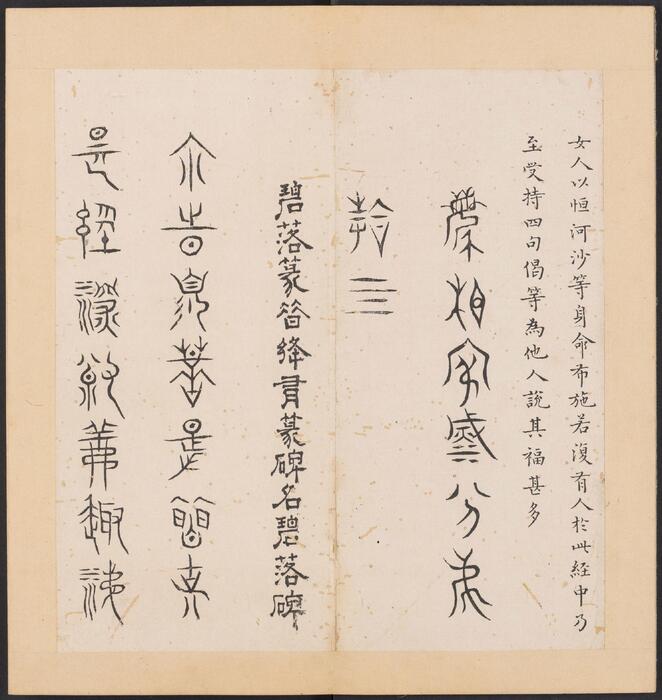 女人以恒河沙等身命布施若復有人於此経中乃
至受持四句偈等為他人說其福甚多
離相寂滅分弟
拾亖
碧落篆絳篆碑名碧落碑
尒時須菩提聞說
是經深解義趣涕